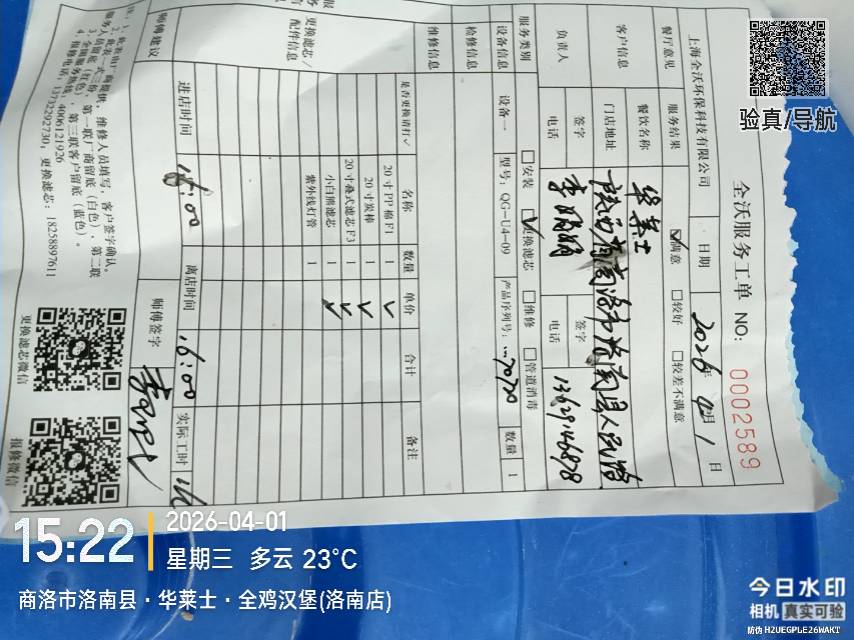 全沃服务工单 NO: 0002589
上海全沃环保科技有限公司 日期 2026年 4月 1 日
餐厅意见 服务结果 ☑满意 □较好 □较差不满意
客户信息 餐饮名称 华莱士
门店地址 陕西省商洛市洛南县人民路
负责人 签字 李娟娟 签字
电话 电话 13629146878
服务类别 □安装 ☑更换滤芯 □维修 □管道消毒
设备信息 设备一 型号: QG-U4-09 产品序列号: 数量 1
检修信息
维修信息
更换滤芯/配件信息 是否更换请打✓ 名称 数量 单价 合计 备注
20寸PP棉F1 1 ✓
20寸炭棒 1 ✓
20寸叠式滤芯F3 1 ✓
小白熊滤芯 1 ✓
紫外线灯管 1
师傅建议 进店时间 16:00 离店时间 16:00 实际工时
师傅签字
1、此表由厂商提供，维修人员填写，客户签字确认。
2、此表一式三份，第一联厂商留底（白色），第二联
服务人员留底（红色），第三联客户留底（蓝色）。
4、全国服务热线: 4006121926
报修电话: 13732292730，更换滤芯: 18258897611
更换滤芯微信
报修微信
验真/导航
15:22
2026-04-01
星期三 多云 23°C
商洛市洛南县·华莱士·全鸡汉堡(洛南店)
今日水印
相机 真实可验
防伪 H2UEGPLE26WAKT